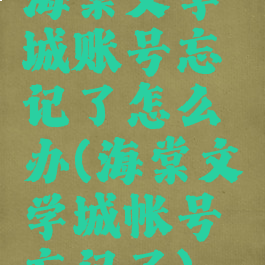 海棠文学
城账号忘
记了怎么
办(海棠文
学城帐号
忘记了)